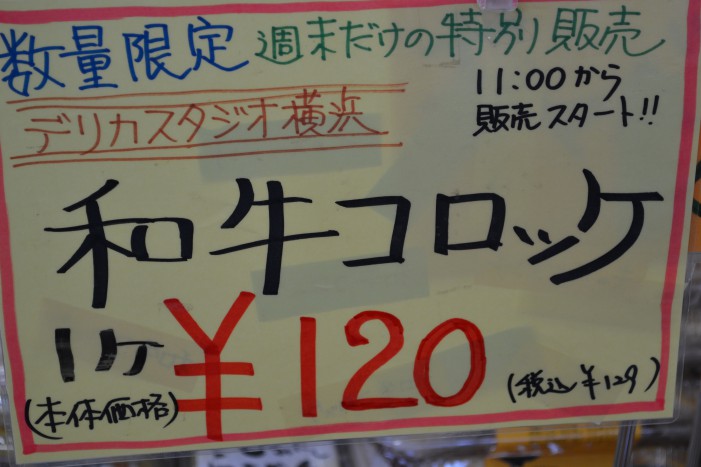 数量限定 週末だけの特別販売
11:00から
販売スタート!!
デリカスタジオ横浜
和牛コロッケ
1ケ ¥120
(本体価格)
(税込¥129)